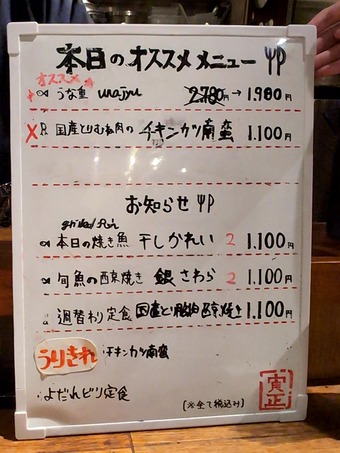 本日のオススメメニュー
オススメ
うな重 unajyu 2,780円→1,980円
国産とりむね肉の チキンカツ南蛮 1,100円
お知らせ
grilled fish
本日の焼き魚 干しかれい 2 1,100円
旬魚の西京焼き 銀さわら 2 1,100円
週替わり定食 国産とり 西京焼き 1,100円
うりきれ ・チキンカツ南蛮
・よだれどり定食
(※全て税込み)
寅正